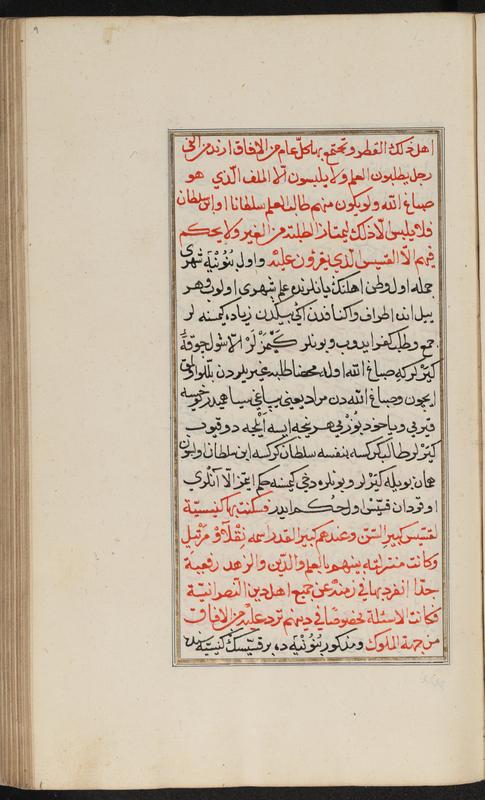 اهل ذلك القطر وتجتمع بها كل عام من الافاق ازيد من الفي
رجل يطلبون العلم ولا يلبسون الا الملف الذي هو
صباغ الله ولو يكون منهم طالب العلم سلطانا او ابن سلطان
فلا يلبس الا ذلك ليمتاز الطلبة من الغير ولا يحكم
فيهم الا القسيس الذي يقرؤن عليه واول بنونيه شهرى
جمله اول وطن اهلنك يانلرنده علم شهرى اولوب وهر
ييل انده اطراف واكنافدن ايكى بيكدن زياده كمسنه لر
جمع وطلب كفر ايدوب وبونلر كيمزلر الا شول جوقه
كيرلر كه صباغ الله اوله محضا طلبه غيريلردن بللو اولمق
ايچون وصباغ الله دن مراد يعنى بياغى سياهيدر
وياخود يوزى هر نيجه ايسه ايله
كيرلر طالب كركسه بنفسه سلطان كركسه ابن سلطان اولسون
همان بويله كيرلر وبونلره دخى كمسنه حكم ايتمز الا آنلرى
اوقودان قسيس اولوحكم ايدر فسكنت بها كنيسية
لقسيس كبير السن وعندهم كبير القدر اسمه نقلاو مرتيل
وكانت منزلته بينهم بالعلم والدين والزهد رفيعة
جدا انفرد بها في زمنه عن جميع اهل دين النصرانية
فكانت الاسئلة خصوصا في دينهم ترد عليه من الافاق
من جهة الملوك ومذكور بنونيه ده بر قسيسك كنيسه سنده